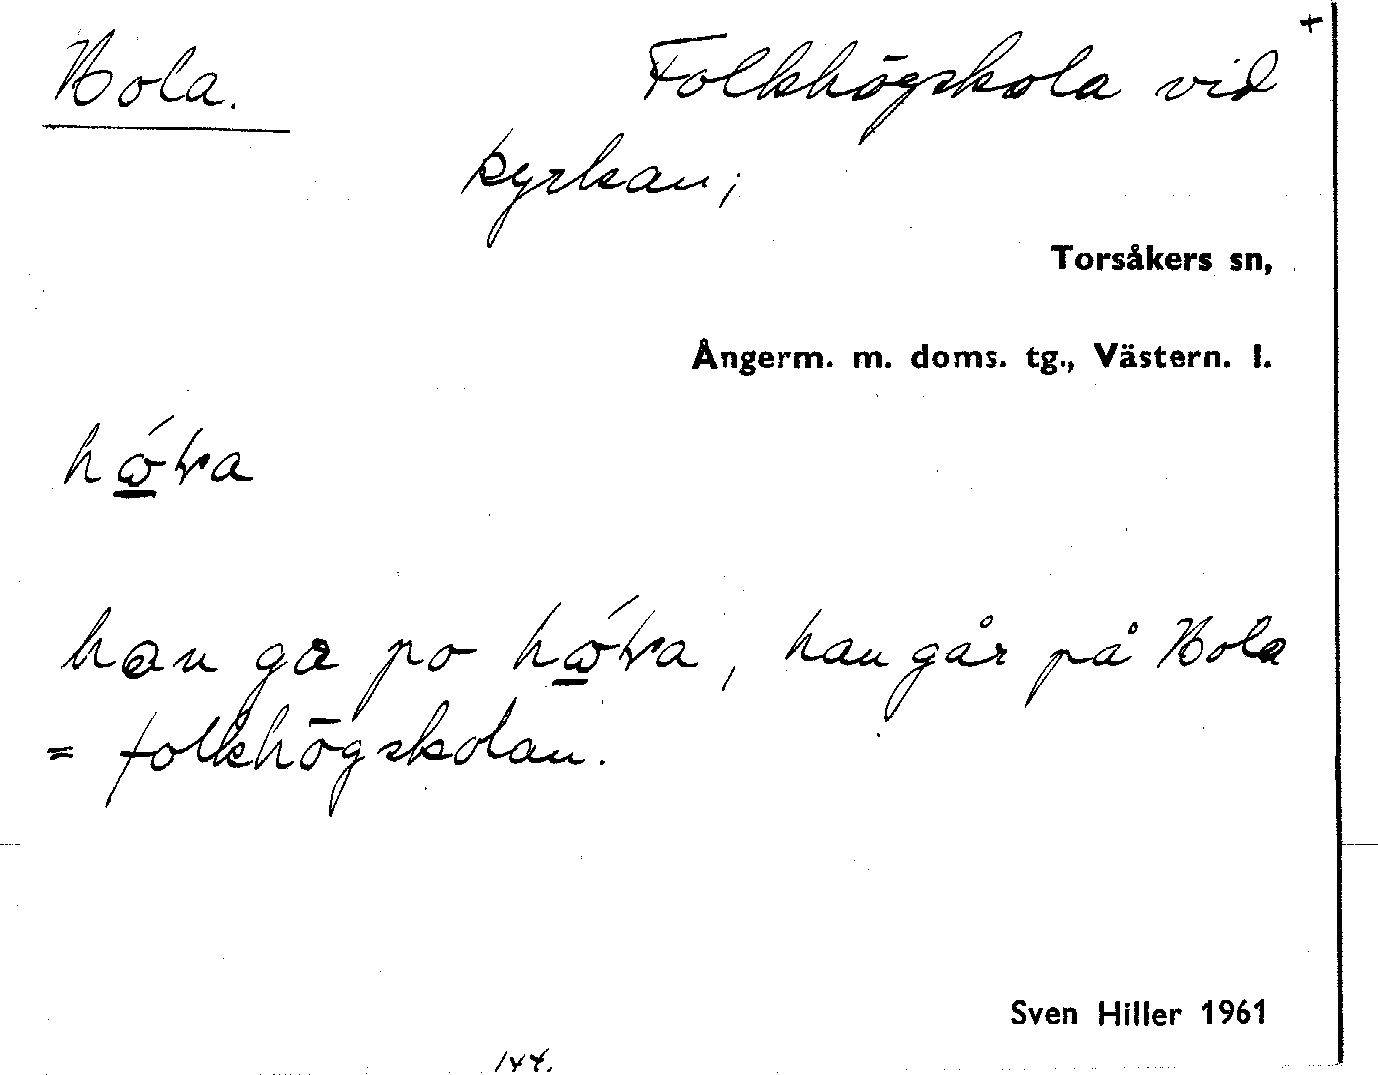 Hola. Folkhögskola vid +
kyrkan;
Torsåkers sn,
Ångerm. m. doms. tg., Västern. l.
han ga po , han går på Hola
= folkhögskolan.
Sven Hiller 1961
144.